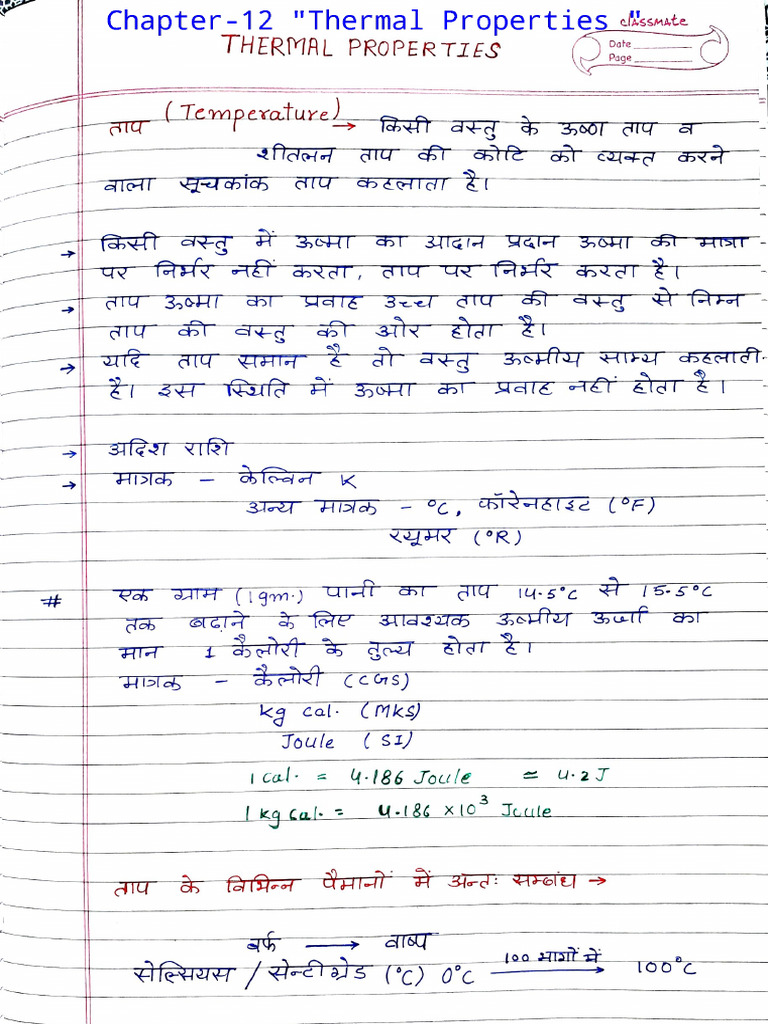 Chapter-12 "Thermal Properties "
classmate
THERMAL PROPERTIES
Date
Page
ताप (Temperature) → किसी वस्तु के ऊष्ण ताप व
शीतलन ताप की कोटि को व्यक्त करने
वाला सूचकांक ताप कहलाता है।
→ किसी वस्तु में ऊष्मा का आदान प्रदान ऊष्मा की मात्रा
पर निर्भर नहीं करता, ताप पर निर्भर करता है।
→ ताप ऊष्मा का प्रवाह उच्च ताप की वस्तु से निम्न
ताप की वस्तु की ओर होता है।
→ यदि ताप समान है तो वस्तु ऊष्मीय साम्य कहलाती
है। इस स्थिति में ऊष्मा का प्रवाह नहीं होता है।
→ अदिश राशि
→ मात्रक - केल्विन K
अन्य मात्रक - °C, फॉरेनहाइट (°F)
रयूमर (°R)
# एक ग्राम (1gm.) पानी का ताप 14.5°C से 15.5°C
तक बढ़ाने के लिए आवश्यक ऊष्मीय ऊर्जा का
मान 1 कैलोरी के तुल्य होता है।
मात्रक - कैलोरी (CGS)
kg cal. (MKS)
Joule (SI)
1 cal. = 4.186 Joule ≃ 4.2 J
1 kg cal. = 4.186 ×10³ Joule
ताप के विभिन्न पैमानों में अन्तः सम्बंध →
बर्फ → वाष्प
सेल्सियस / सेन्टीग्रेड (°C) 0°C 100 भागों में → 100°C